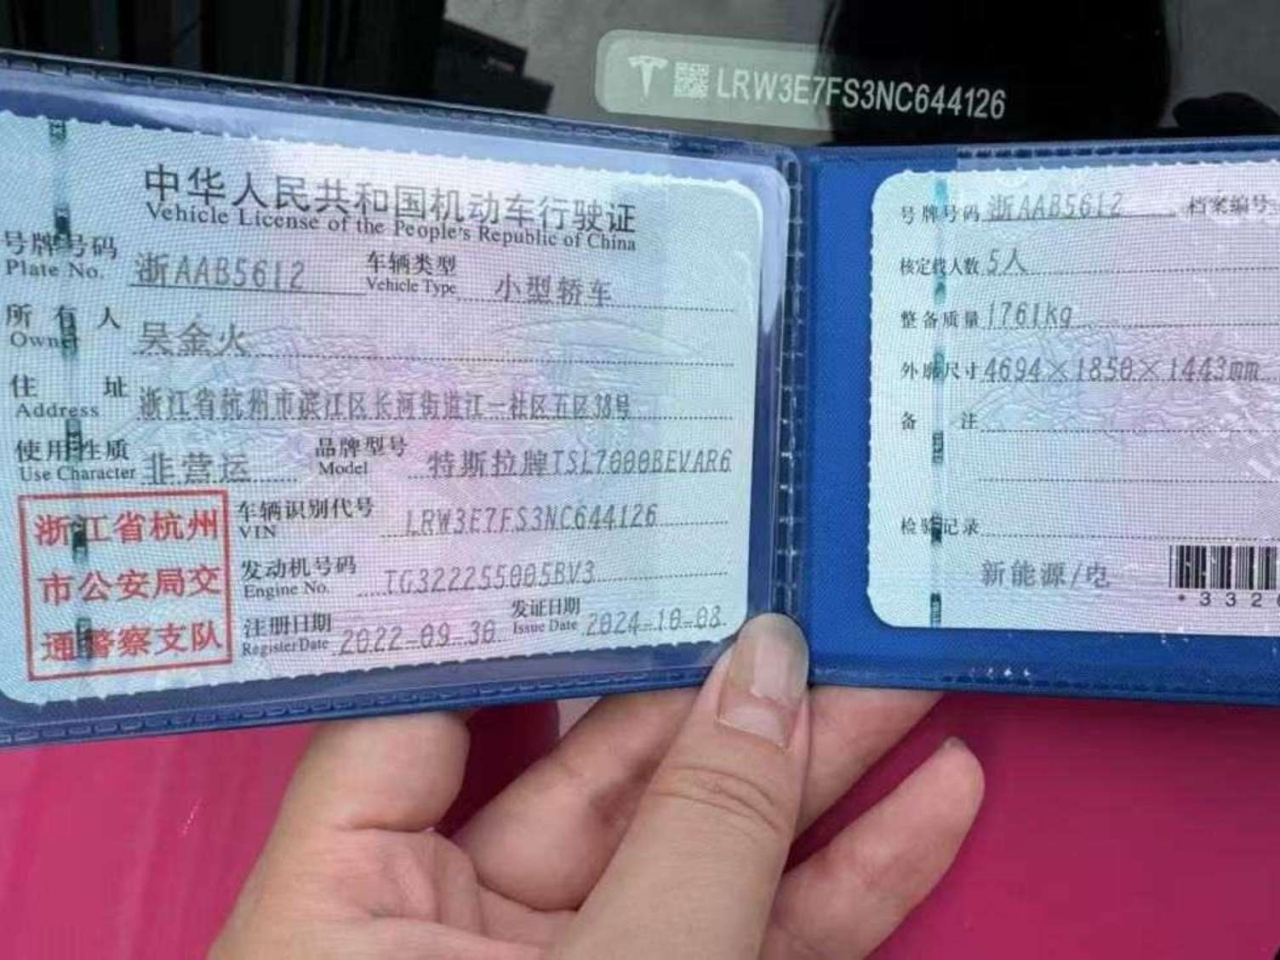 LRW3E7FS3NC644126
中华人民共和国机动车行驶证
Vehicle License of the People's Republic of China
号牌号码 浙AAB5612 车辆类型 小型轿车
Plate No. Vehicle Type
所有人 吴金火
Owner
住址 浙江省杭州市滨江区长河街道江一社区五区38号
Address
使用性质 非营运 品牌型号 特斯拉牌TSL7000BEVAR6
Use Character Model
浙江省杭州
市公安局交
通警察支队
车辆识别代号 LRW3E7FS3NC644126
VIN
发动机号码 TG322255005BV3
Engine No.
注册日期 2022-09-30 发证日期 2024-10-08
Register Date Issue Date
号牌号码 浙AAB5612 档案编号
核定载人数 5人
整备质量 1761kg
外廓尺寸 4694×1850×1443mm
备注
检验记录
新能源/电
*332